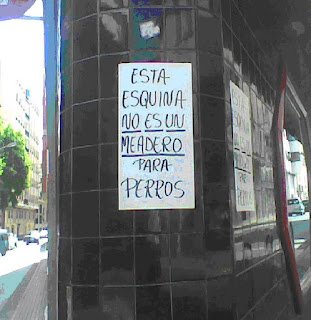 ESTA
ESQUINA
NO ES UN
MEADERO
PARA
PERROS